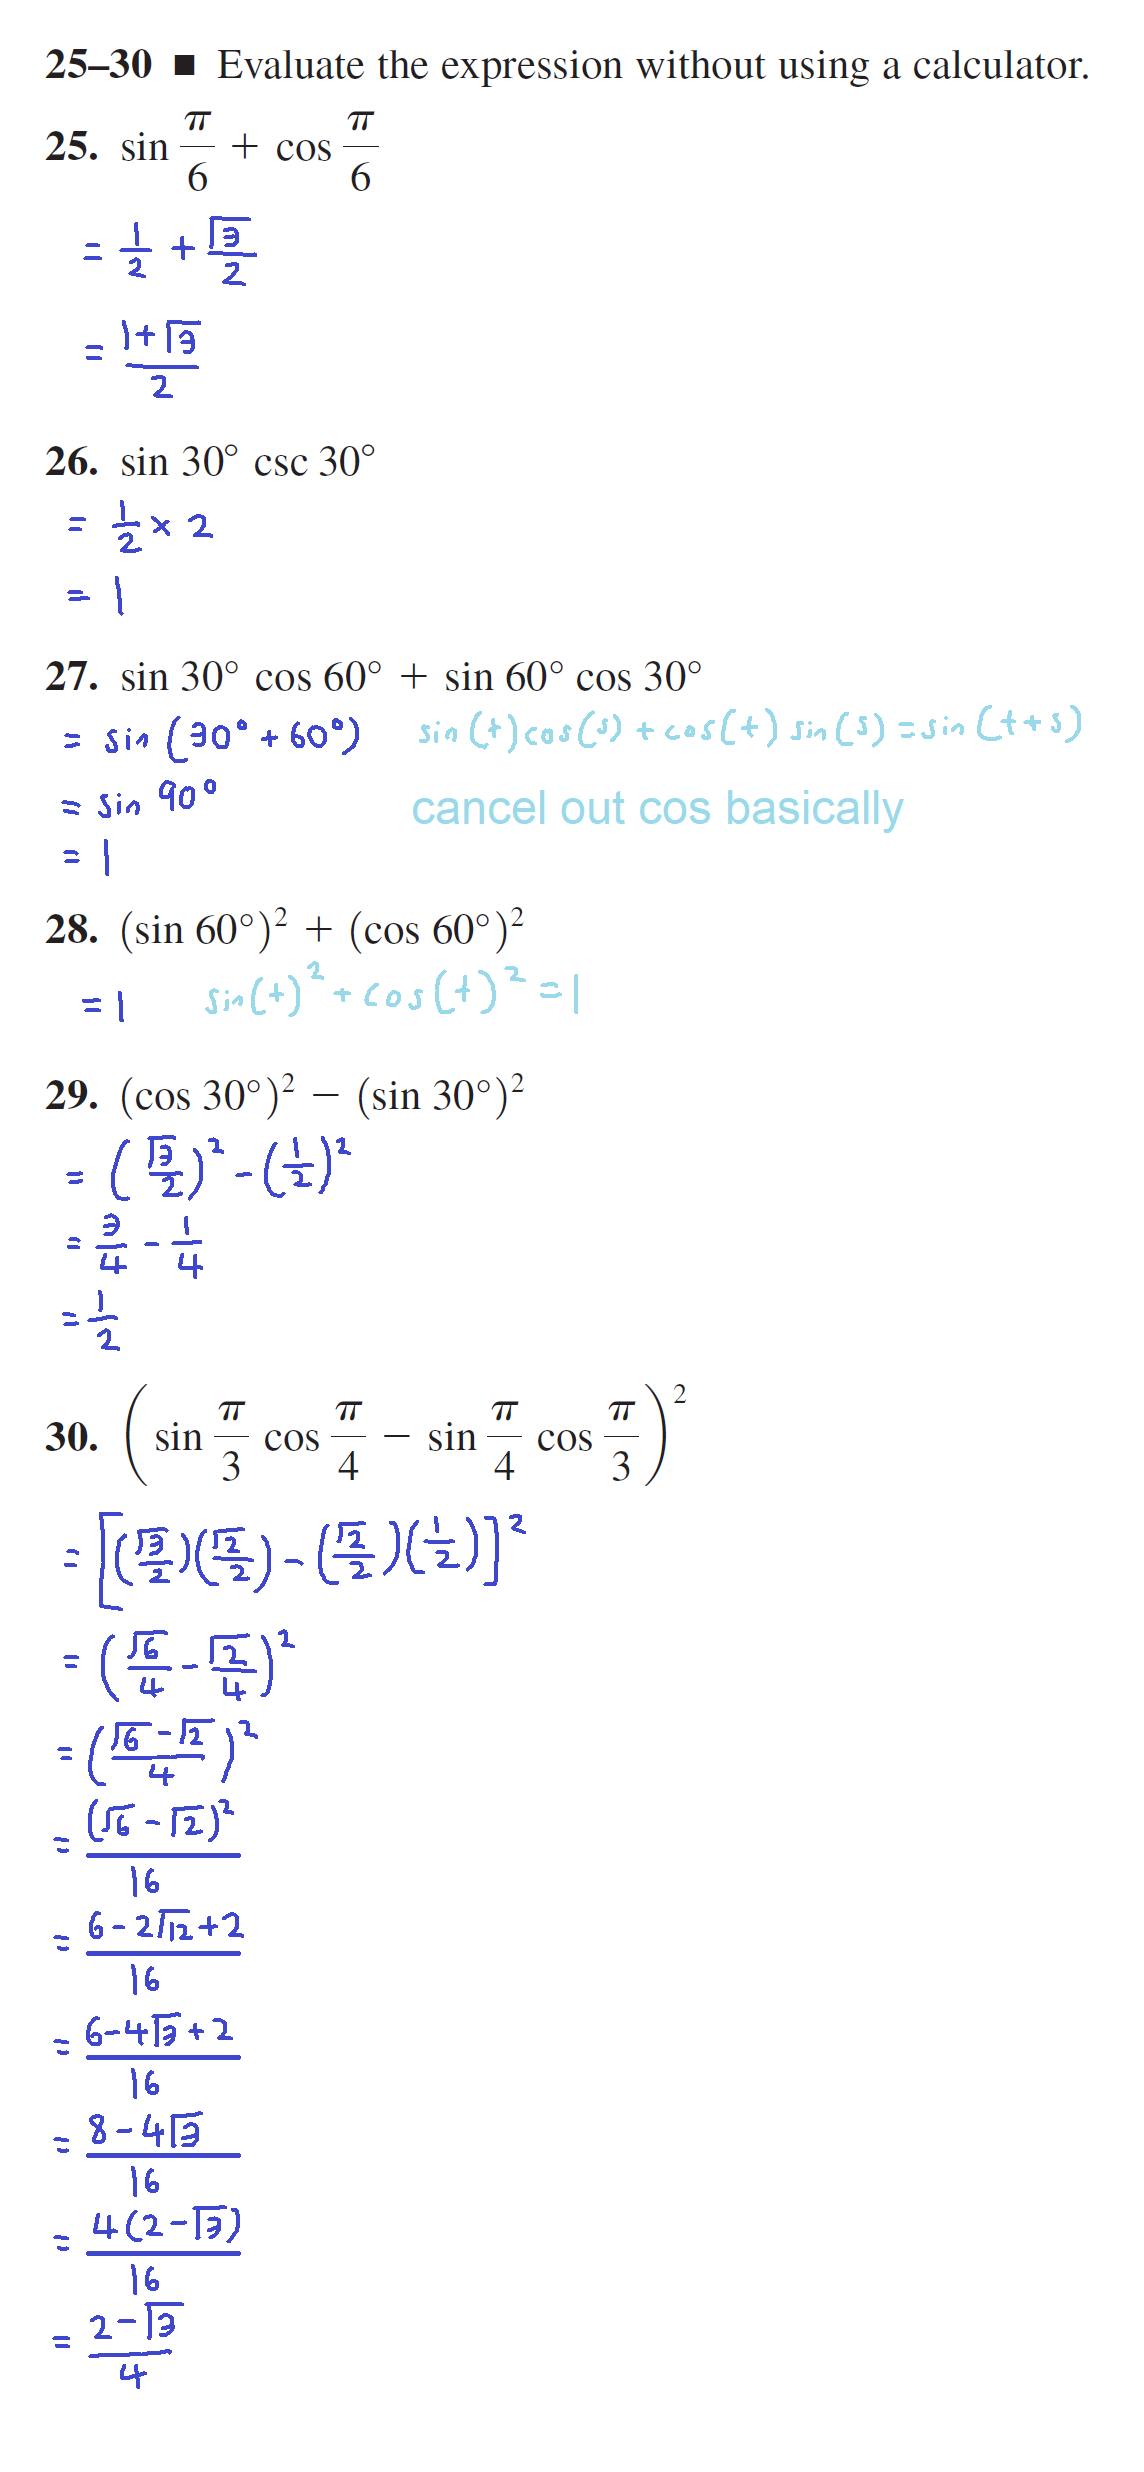 25–30 ■ Evaluate the expression without using a calculator.
25. sin π/6 + cos π/6
= 1/2 + √3/2
= (1+√3)/2
26. sin 30° csc 30°
= 1/2 × 2
= 1
27. sin 30° cos 60° + sin 60° cos 30°
= sin (30° + 60°) sin(t)cos(s) + cos(t) sin(s) = sin(t+s)
= sin 90° cancel out cos basically
= 1
28. (sin 60°)² + (cos 60°)²
= 1 sin(t)² + cos(t)² = 1
29. (cos 30°)² − (sin 30°)²
= (√3/2)² - (1/2)²
= 3/4 - 1/4
= 1/2
30. (sin π/3 cos π/4 − sin π/4 cos π/3)²
= [(√3/2)(√2/2) - (√2/2)(1/2)]²
= (√6/4 - √2/4)²
= ((√6 - √2)/4)²
= (√6 - √2)²/16
= (6 - 2√12 + 2)/16
= (6 - 4√3 + 2)/16
= (8 - 4√3)/16
= 4(2 - √3)/16
= (2 - √3)/4